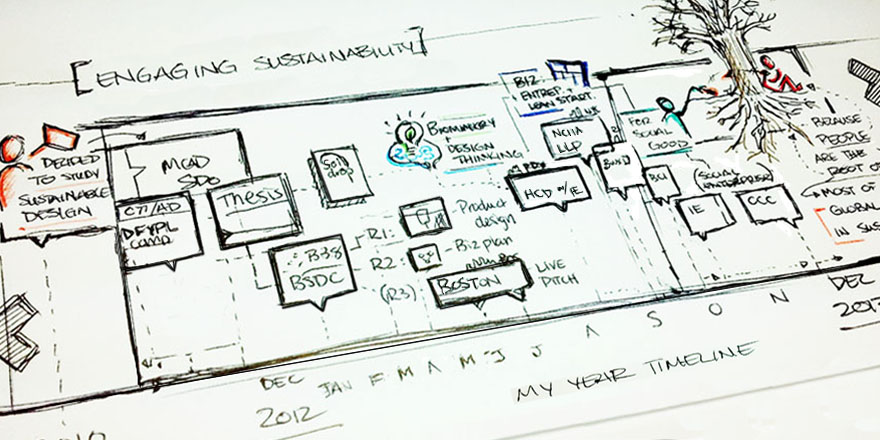 [ENGAGING SUSTAINABILITY]
DECIDED
TO STUDY
SUSTAINABLE
DESIGN
MCAD
SDO
DFYPL
CAMP
Thesis
BSDC
R1:
Product
design
R2:
Biz plan
(R3)
BOSTON
LIVE
PITCH
BIOMIMICRY
DESIGN
THINKING
BIZ:
ENTREP.
LEAN START
NCIIA
LLP
HCD w/ IE
FOR
SOCIAL
GOOD
BCI
(SOCIAL
ENTERPRISE)
IE
CCC
BECAUSE
PEOPLE
ARE THE
ROOT OF
MOST OF
GLOBAL
IN SUS
DEC JAN F M A M J J A S O N DEC
2012
MY YEAR TIMELINE